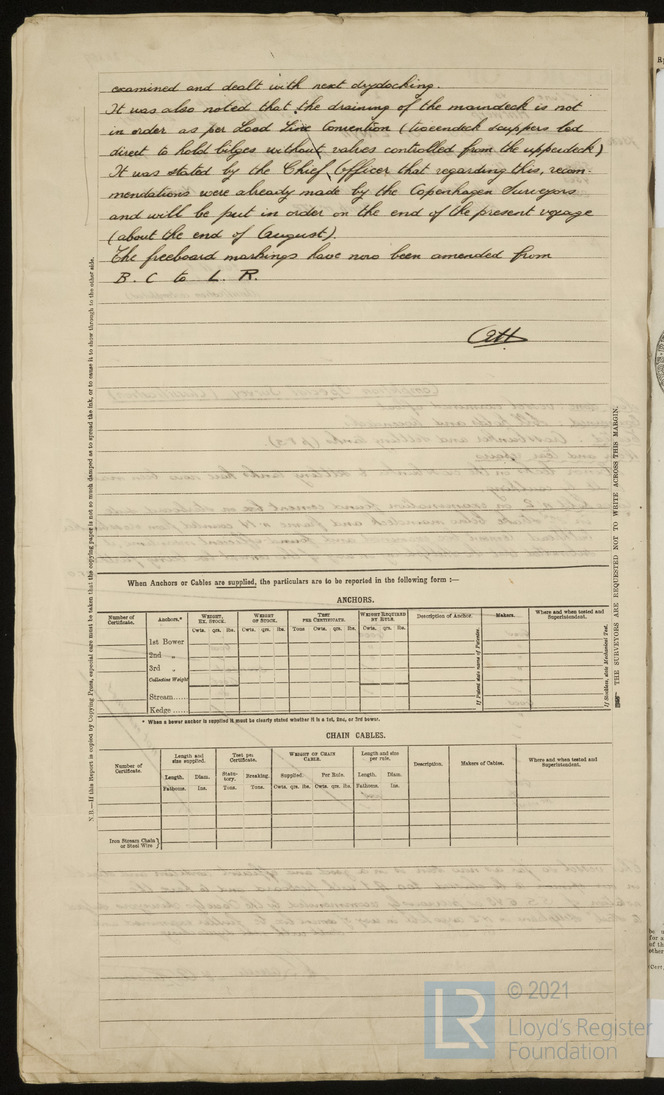 examined and dealt with next drydocking.
It was also noted that the draining of the maindeck is not
in order as per Load Line Convention (tweendeck scuppers led
direct to hold bilges without valves controlled from the upperdeck)
It was stated by the Chief Officer that regarding this, recom-
mendations were already made by the Copenhagen Surveyors
and will be put in order on the end of the present voyage
(about the end of August).
The freeboard markings have now been amended from
B. C to L. R.
N.B.—If this Report is copied by Copying Press, especial care must be taken that the copying paper is not so much damped as to spread the ink, or to cause it to show through to the other side.
THE SURVEYORS ARE REQUESTED NOT TO WRITE ACROSS THIS MARGIN.
When Anchors or Cables are supplied, the particulars are to be reported in the following form :—
ANCHORS.
Number of Certificate.
Anchors.*
Weight, Ex. Stock.
Weight of Stock.
Test per Certificate.
Weight Required by Rule.
Description of Anchor.
Makers.
Where and when tested and Superintendent.
Cwts. qrs. lbs. Cwts. qrs. lbs. Tons Cwt. qrs. lbs. Cwts. qrs. lbs.
1st Bower
2nd „
3rd „
Collective Weight
Stream
Kedge
If Patent state name of Patentee.
If Stockless, state Mechanical Test.
* When a bower anchor is supplied it must be clearly stated whether it is a 1st, 2nd, or 3rd bower.
CHAIN CABLES.
Number of Certificate.
Length and size supplied.
Test per Certificate.
Weight of Chain Cable.
Length and size per rule.
Description.
Makers of Cables.
Where and when tested and Superintendent.
Length. Diam. Statutory. Breaking. Supplied. Per Rule. Length. Diam.
Fathoms. Ins. Tons. Tons. Cwts. qrs. lbs. Cwts. qrs. lbs. Fathoms. Ins.
Iron Stream Chain or Steel Wire
LR
© 2021
Lloyd's Register
Foundation